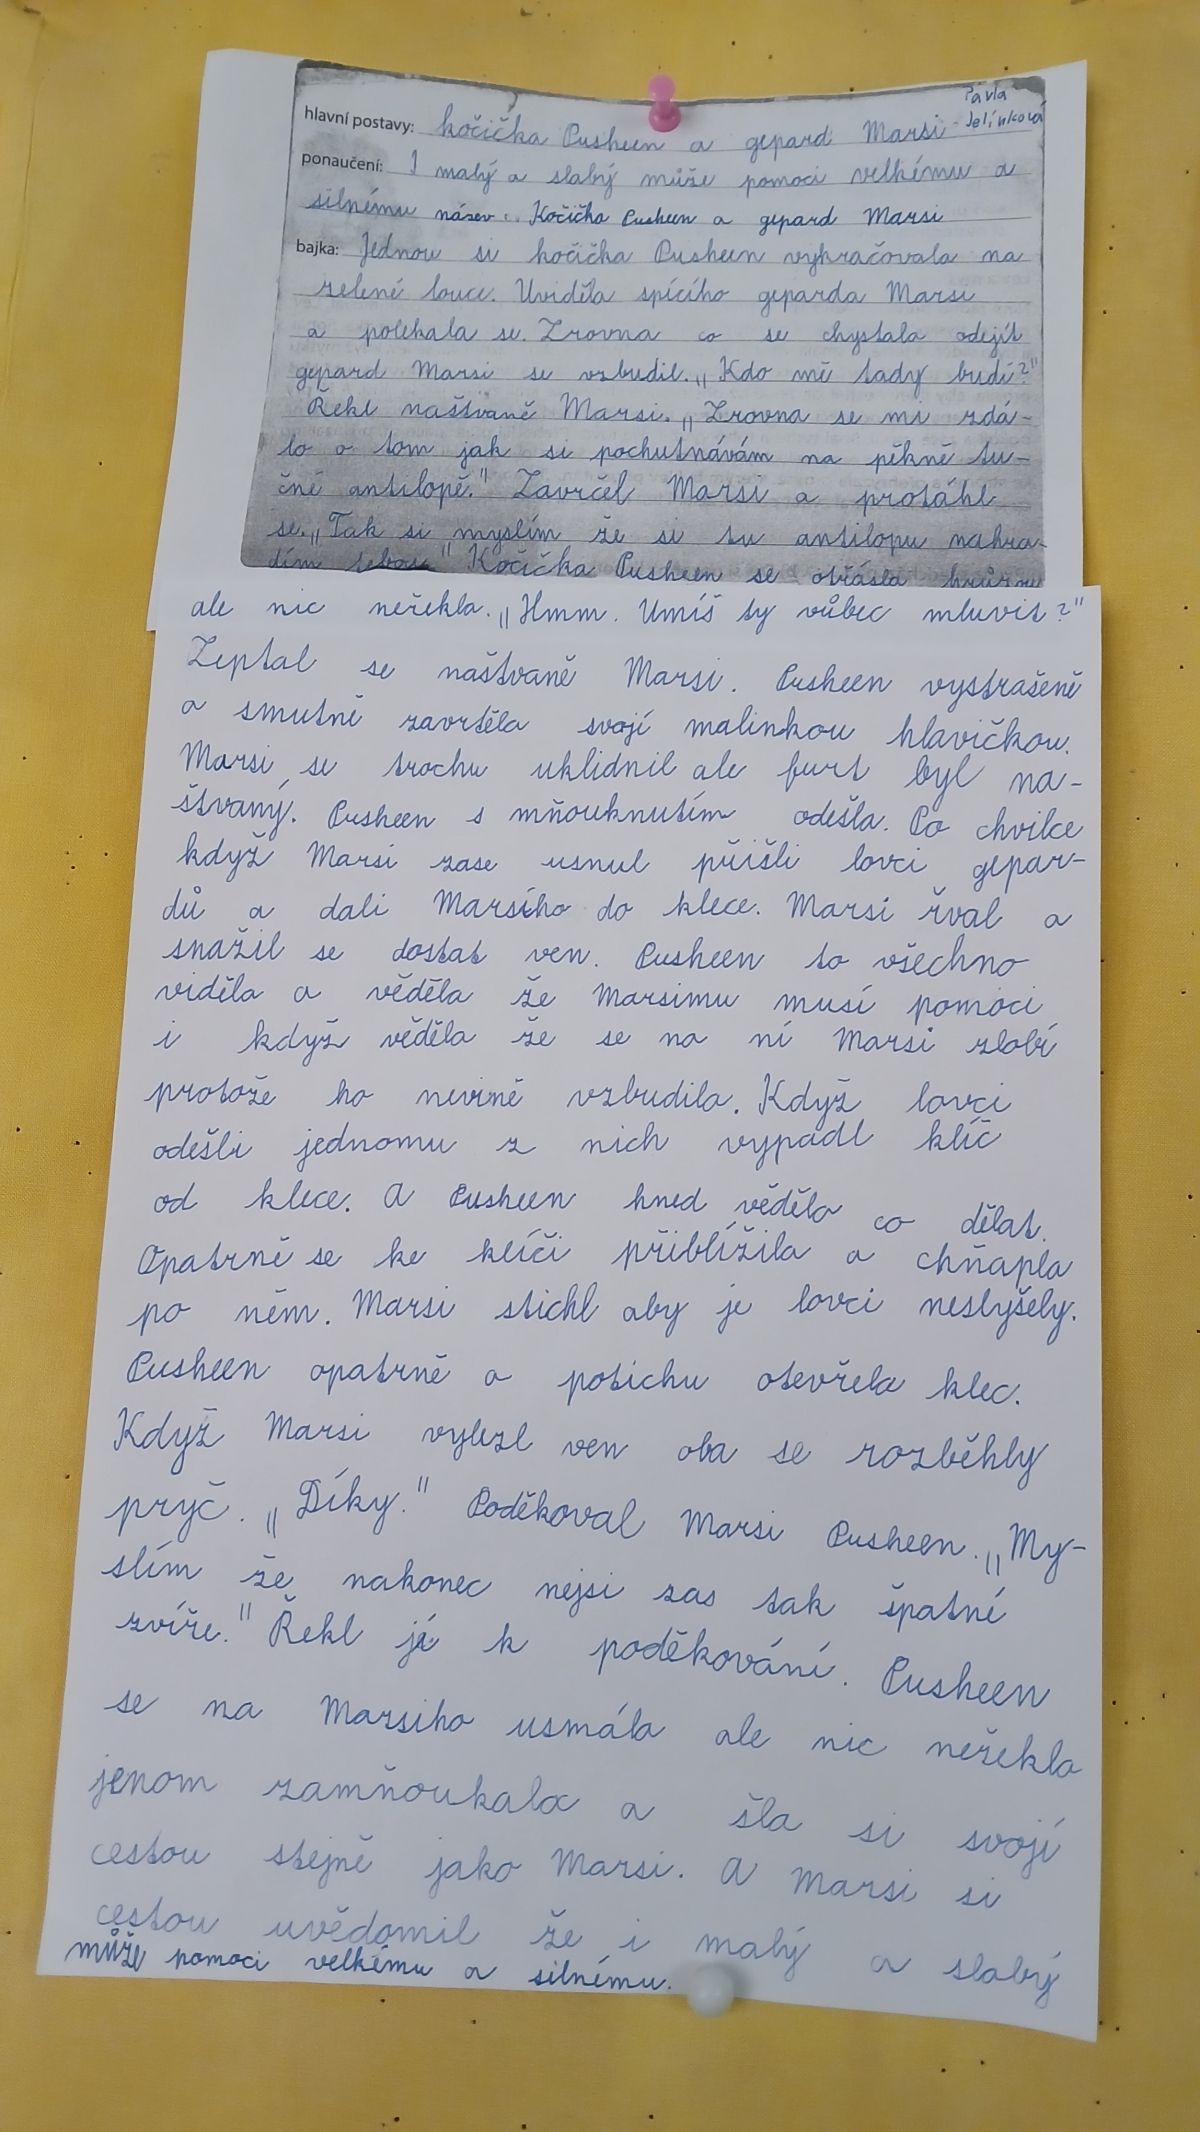 Pavla
hlavní postavy: kočička Pusheen a gepard Marsi Jelínková
ponaučení: I malý a slabý může pomoci velkému a
silnému název: Kočička Pusheen a gepard Marsi
bajka: Jednou si kočička Pusheen vykračovala na
zelené louce. Uviděla spícího geparda Marsi
a polekala se. Zrovna co se chystala odejít
gepard Marsi se vzbudil. „Kdo mě tady budí?"
Řekl naštvaně Marsi. „Zrovna se mi zdá-
lo o tom jak si pochutnávám na pěkně tu-
čné antilopě." Zavrčel Marsi a protáhl
se. „Tak si myslím že si tu antilopu nahra-
dím tebou" Kočička Pusheen se otřásla hrůzou
ale nic neřekla. „Hmm. Umíš ty vůbec mluvit?"
Zeptal se naštvaně Marsi. Pusheen vystrašeně
a smutně zavrtěla svojí malinkou hlavičkou.
Marsi se trochu uklidnil ale furt byl na-
štvaný. Pusheen s mňouknutím odešla. Po chvilce
když Marsi zase usnul přišli lovci gepar-
dů a dali Marsiho do klece. Marsi řval a
snažil se dostat ven. Pusheen to všechno
viděla a věděla že Marsimu musí pomoci
i když věděla že se na ní Marsi zlobí
protože ho nevině vzbudila. Když lovci
odešli jednomu z nich vypadl klíč
od klece. A Pusheen hned věděla co dělat.
Opatrně se ke klíči přiblížila a chňapla
po něm. Marsi stichl aby je lovci neslyšely.
Pusheen opatrně a potichu otevřela klec.
Když Marsi vylezl ven oba se rozběhly
pryč. „Díky." Poděkoval Marsi Pusheen. „My-
slím že nakonec nejsi zas tak špatné
zvíře." Řekl jí k poděkování. Pusheen
se na Marsiho usmála ale nic neřekla
jenom zamňoukala a šla si svojí
cestou stejně jako Marsi. A Marsi si
cestou uvědomil že i malý a slabý
může pomoci velkému a silnému.